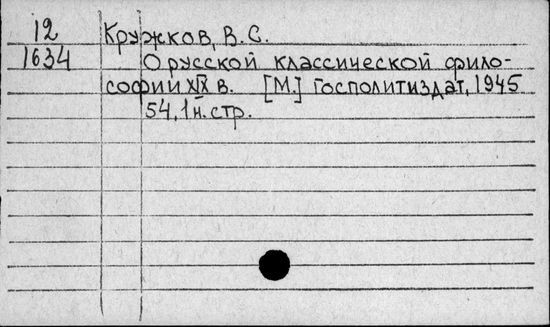 12 Кружков, В.С.
1634 О русской классической фило-
софии XIX в. [М.] Госполитиздат, 1945
54, 1 н. стр.